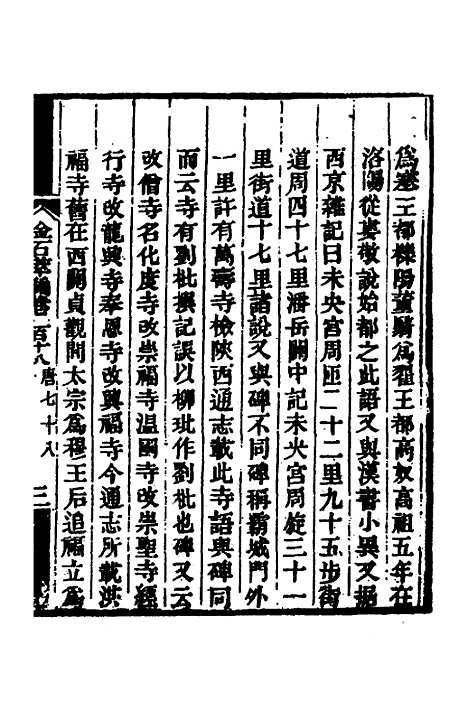 為塞王都櫟陽董翳為翟王都高奴高祖五年在
洛陽從婁敬說始都之此語又與漢書小異又據
西京雜記曰未央宮周匝二十二里九十五步街
道周四十七里潘岳關中記未央宮周旋三十一
里街道十七里諸說又與碑不同碑稱霸城門外
一里許有萬壽寺檢陝西通志載此寺語與碑同
而云寺有劉玭撰記誤以柳玭作劉玭也碑又云
改僧寺名化度寺改崇福寺溫國寺改崇聖寺經
行寺改龍興寺奉恩寺改興福寺今通志所載洪
福寺舊在西關貞觀間太宗為穆王后追福立為
金石萃編卷一百十八 唐七十八 三